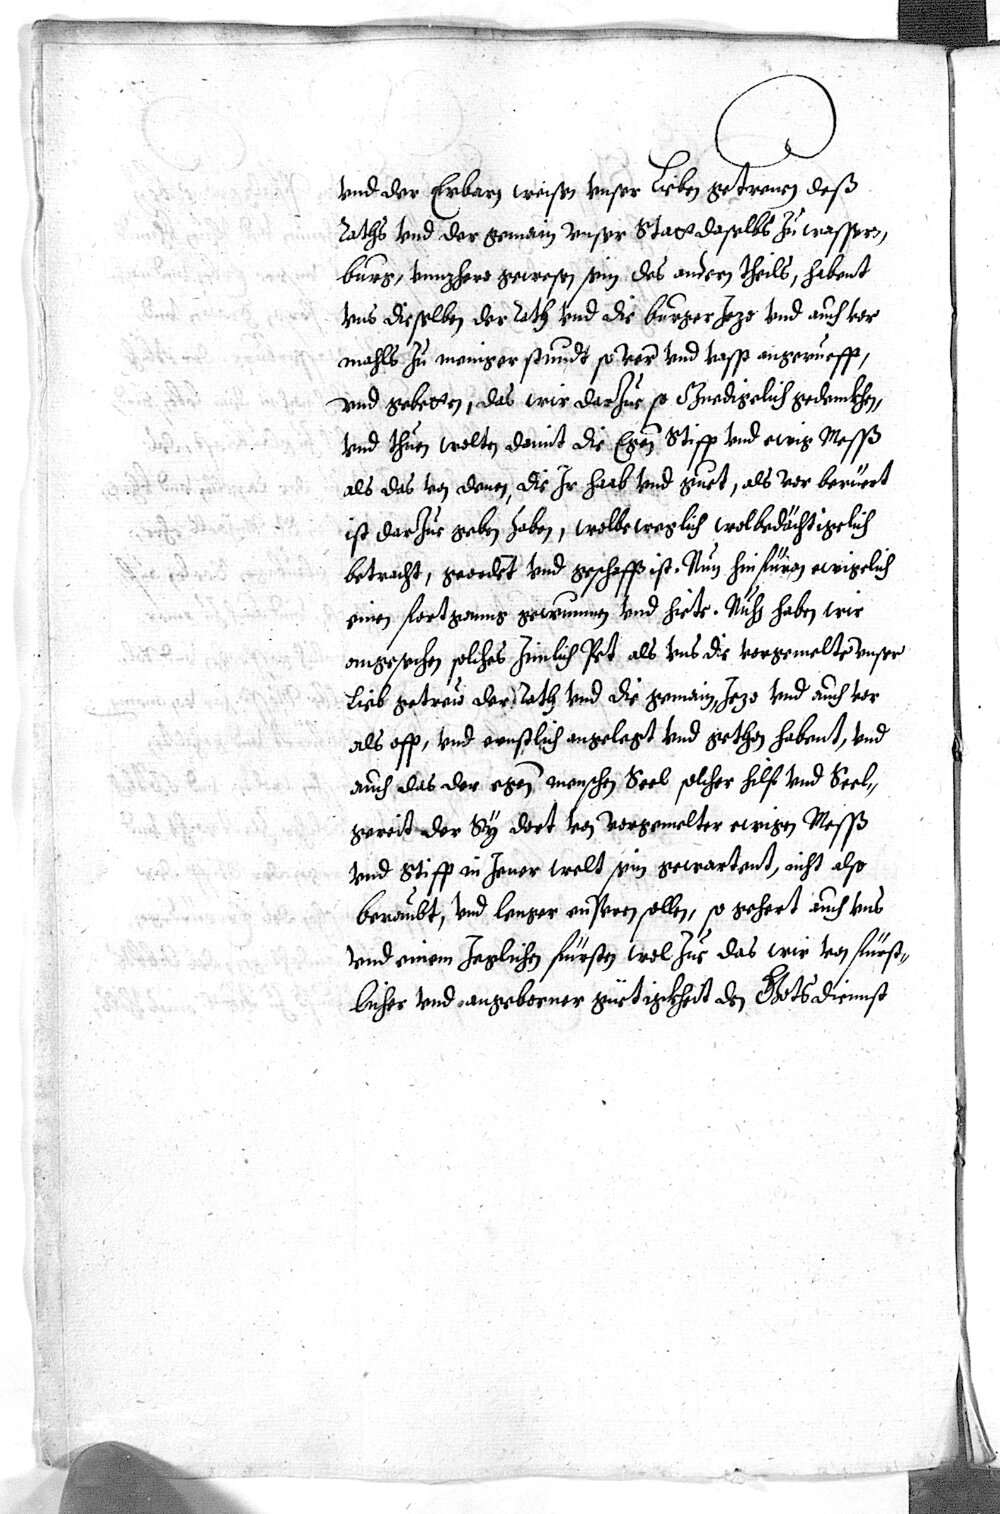 vnd der Erbarn weisen vnser Lieben getreuen deß
Raths vnd der gemain vnser Statt daselbs zu wasser,,
burg, vnnzhero gewesen sein des andern theils, habent
vns dieselben der Rath vnd die burger Jezo vnd auch vor
mahls zu meniger stundt, so ver vnd vasst angeruefft,
vnd gebetten, das wir darzue so Gnedigelich gedenckhen,
vnd thuen wolten damit die Egen Stifft vnd ewig Mess
als das von denen, die Ir haab vnd guet, als vor beruert
ist darzue geben haben, wolbeweglich wolbedächtigelich
betracht, geordet vnd geschafft ist. Nun hinfüron ewigelich
einen fortganng gewunnen vnd hiete. Nuhs haben wir
angesechen solches zimlich Pet als vns die vorgemelte vnser
Lieb getreuw der Rath vnd die gemain, Jezo vnd auch vor
als offt, vnd ernstlich angelegt vnd gethon habent, vnd
auch das der egen menschen Seel solcher hilf vnd Seel,,
gereit der Sy dort von vorgemelter ewigen Mess
vnd Stifft in Jener welt sein gewartent, nicht also
beraubt, vnd lenger empern sollen, so gehert auch vns
vnd einem Jeglichen fürsten wol zue das wir von fürst,,
licher vnd angeborner güetigkheit den Gots diennst